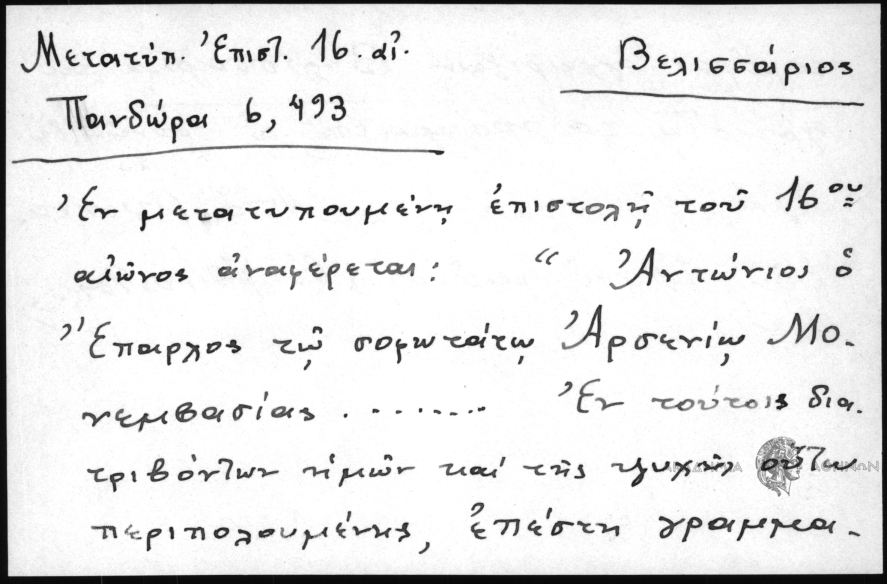 Μετατύπ. Ἐπιστ. 16. αἰ.
Βελισσάριος
Πανδώρα 6, 493
Ἐν μετατυπουμένῃ ἐπιστολῇ τοῦ 16ου
αἰῶνος ἀναφέρεται: “ Ἀντώνιος ὁ
Ἔπαρχος τῷ σοφωτάτῳ Ἀρσενίῳ Μο-
νεμβασίας ........ Ἐν τούτοις δια-
τριβόντων ἡμῶν καί τῆς ψυχῆς οὕτω
περιπολουμένης, ἐπέστη γραμμα-
ΑΘΗΝΩΝ